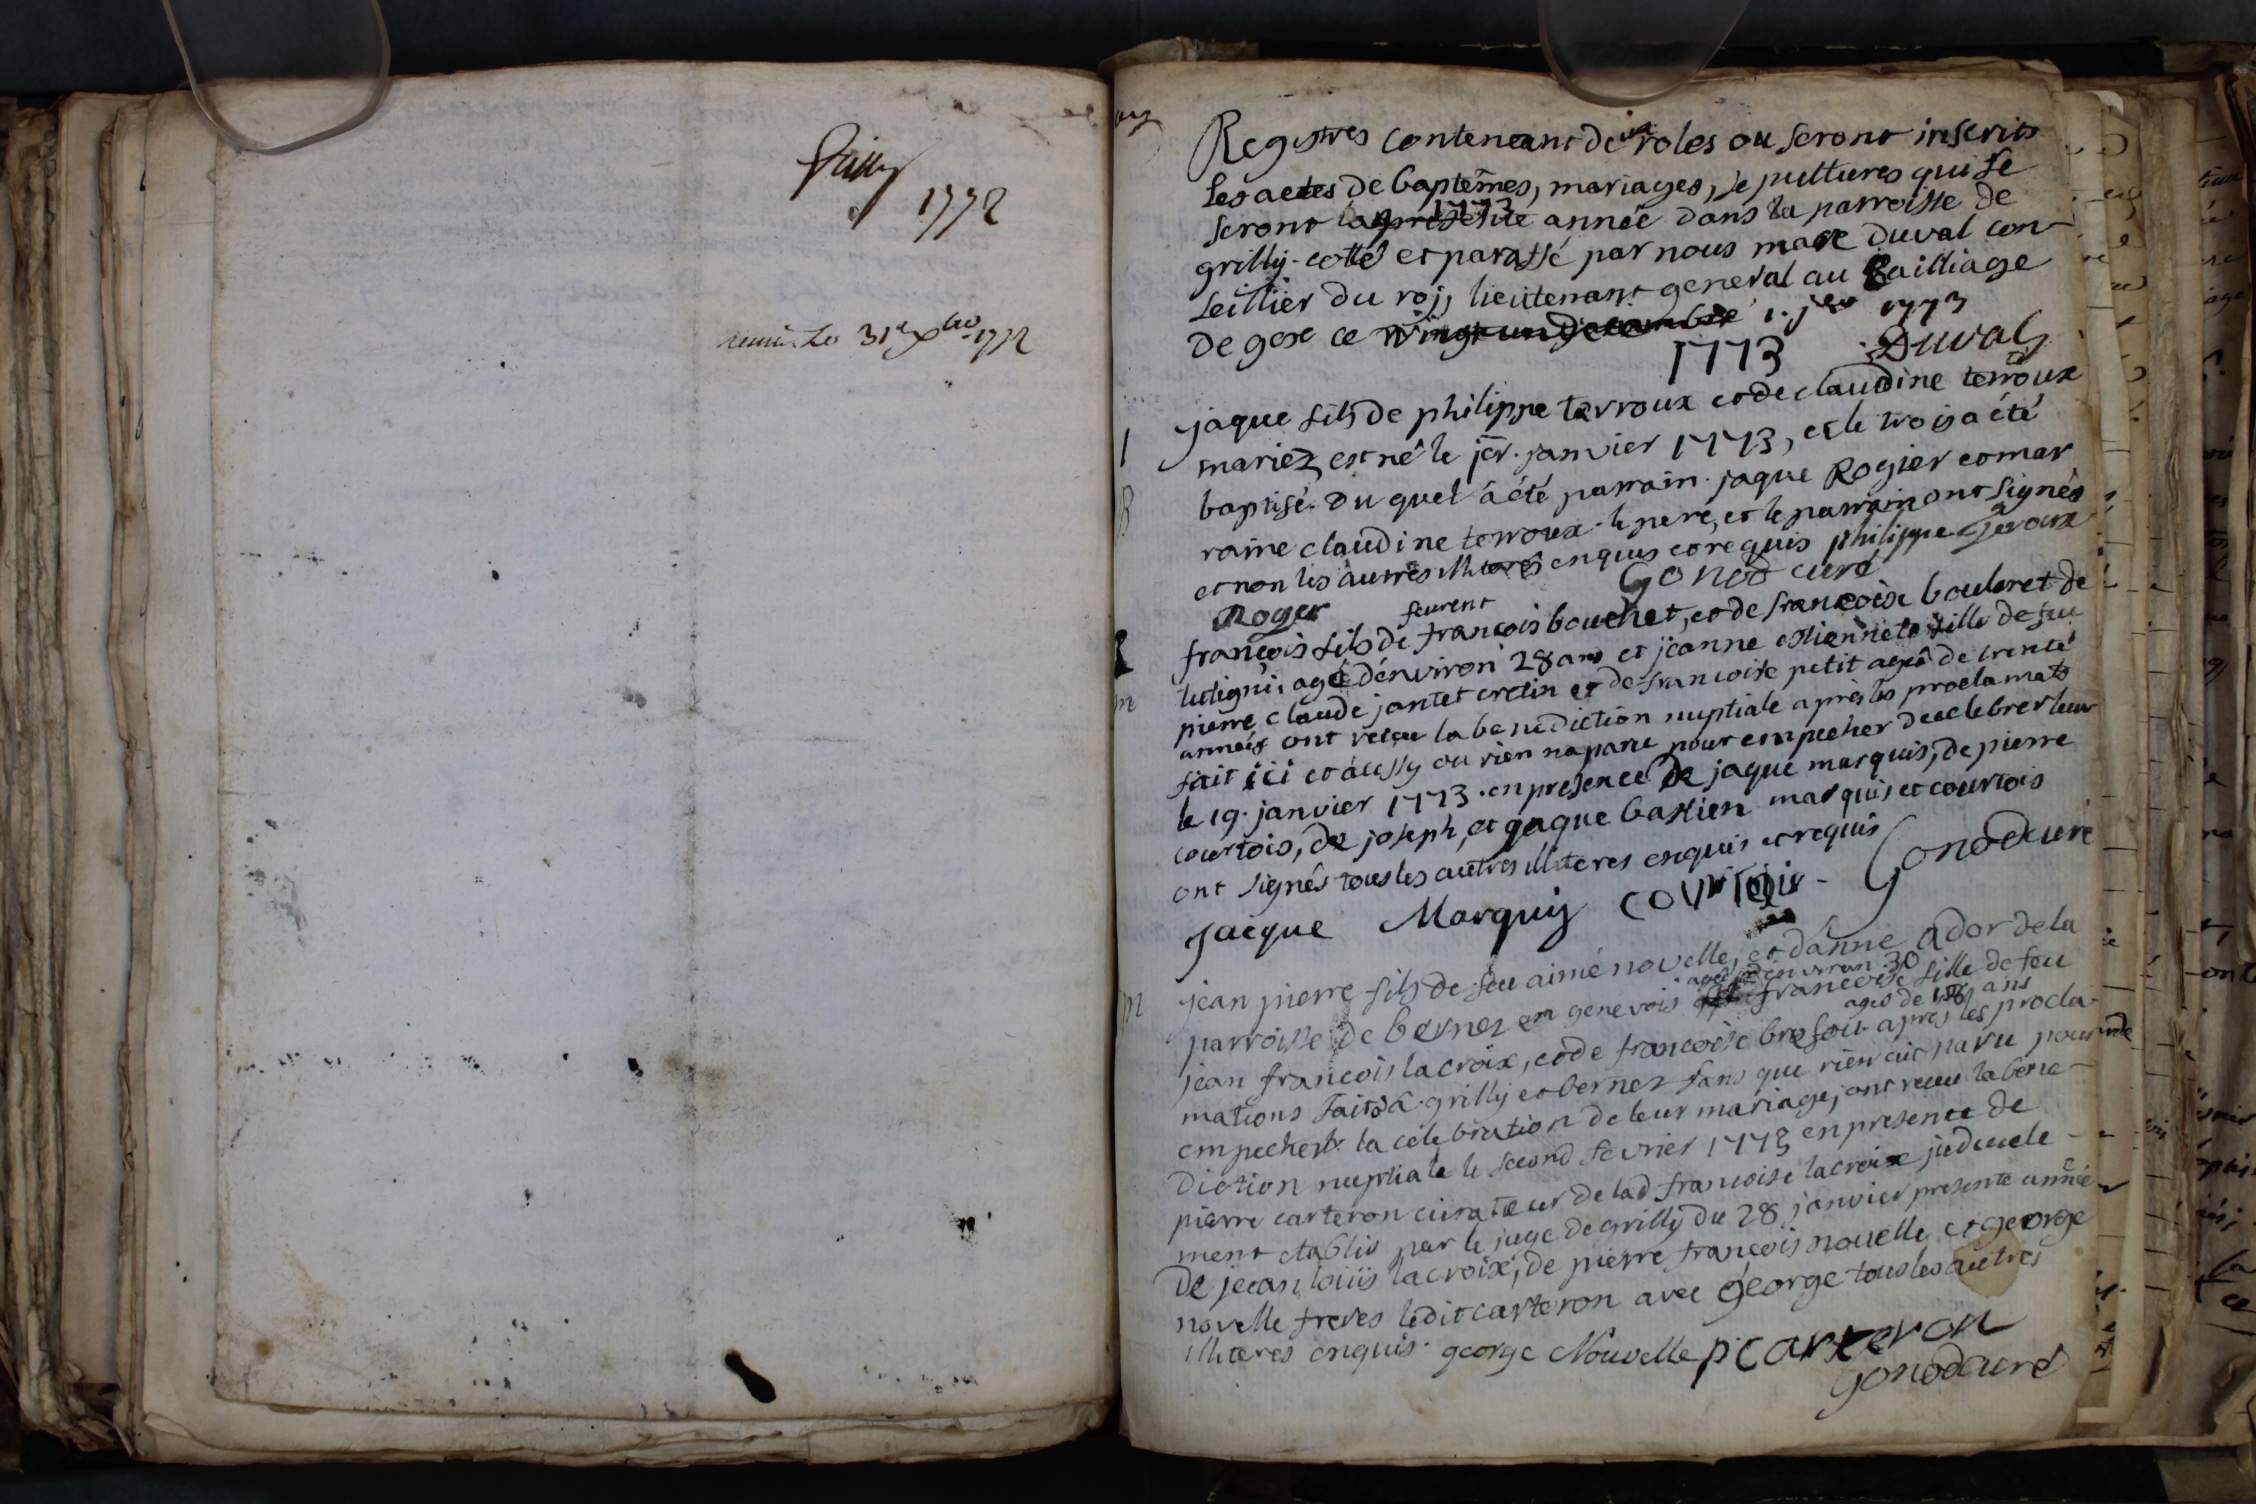 Grilly
1772
remis Le 31e xbre 1772
Registres contenant deux roles ou seront inscrits
les actes de baptêmes, mariages, sepultures qui se
feront la presente 1773 année dans la parroisse de
grilly cottés et paraffé par nous marc duval con-
seillier du roj, lieutenant general au Bailliage
de gex ce vingt un decembre 1. jer 1773
1773 Duval
1
B
jaque fils de philippe terroux et de claudine terroux
mariez est né le jer. janvier 1773, et le trois a été
baptisé. du quel a été parrain jaque Rogier et mar
raine claudine terroux. le pere, et le parrain ont signés
et non les autres illiteres enquis et requis philippe Teroux
Roger Gonod curé
m
feurent
françois fils de françois bouchet, et de francoise bouloret de
lutigni, agé d'environ 28 ans et jeanne estiennete fille de feu
pierre claude jantet cretin et de francoise petit ageê de trente
années ont reçue la benediction nuptiale apres les proclamats
fait ici et à cessy ou rien na paru pour empecher de celebrer leur
le 19. janvier 1773. en presence de jaque marquis, de pierre
courtois, de joseph, et jaque bastien marquis et courtois
ont signés tous les autres illiteres enquis et requis
Jacque Marquis Courtois Gonod curé
m
jean pierre fils de feu aimé novelle, et d'anne ador de la
parroisse de bernez en genevois agé d'environ 30 françoise fille de feu
jean francois lacroix, et de francoise brosou ages de 18 ans apres les procla-
mations faits à grilly et bernez sans que rien ait paru pour
empecher la celebration de leur mariage, ont receu la bene-
diction nuptiale le second fevrier 1773 en presence de
pierre carteron curateur de lad françoise lacroix judiciele-
ment etablis par le juge de grilly du 28 janvier presente année
de jean louis lacroix, de pierre françois nouelle et george
novelle freres ledit carteron avec george tous les autres
illiteres enquis. george Nouvelle p carteron
gonod curé